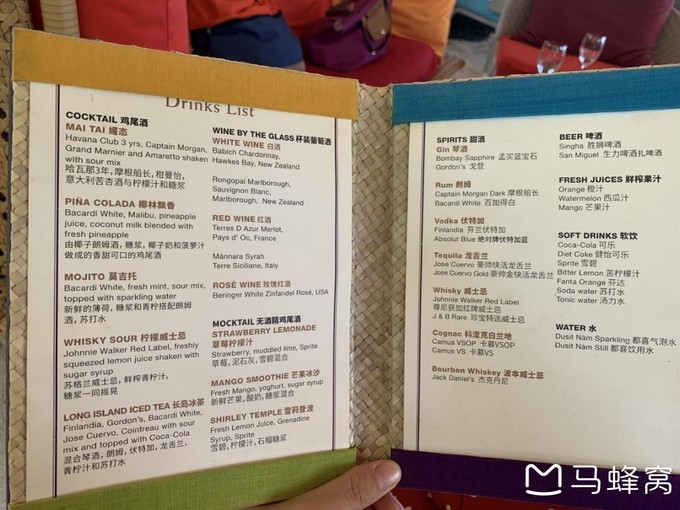 Drinks List
COCKTAIL 鸡尾酒
MAI TAI 媚态
Havana Club 3 yrs, Captain Morgan,
Grand Marnier and Amaretto shaken
with sour mix
哈瓦那3年, 摩根船长, 柑曼怡,
意大利苦杏酒与柠檬汁和糖浆
PIÑA COLADA 椰林飘香
Bacardi White, Malibu, pineapple
juice, coconut milk blended with
fresh pineapple
由椰子朗姆酒, 糖浆, 椰子奶和菠萝汁
做成的香甜可口的鸡尾酒
MOJITO 莫吉托
Bacardi White, fresh mint, sour mix,
topped with sparkling water
新鲜的薄荷, 糖浆和青柠搭配朗姆
酒, 苏打水
WHISKY SOUR 柠檬威士忌
Johnnie Walker Red Label, freshly
squeezed lemon juice shaken with
sugar syrup
苏格兰威士忌, 鲜榨青柠汁,
糖浆一同摇晃
LONG ISLAND ICED TEA 长岛冰茶
Finlandia, Gordon's, Bacardi White,
Jose Cuervo, Cointreau with sour
mix and topped with Coca-Cola
混合琴酒, 朗姆, 伏特加, 龙舌兰,
青柠汁和苏打水
WINE BY THE GLASS 杯装葡萄酒
WHITE WINE 白酒
Babich Chardonnay,
Hawkes Bay, New Zealand
Rongopai Marlborough,
Sauvignon Blanc,
Marlborough, New Zealand
RED WINE 红酒
Terres D Azur Merlot,
Pays d' Oc, France
Mànnara Syrah
Terre Siciliane, Italy
ROSÉ WINE 玫瑰红酒
Beringer White Zinfandel Rosé, USA
MOCKTAIL 无酒精鸡尾酒
STRAWBERRY LEMONADE
草莓柠檬汁
Strawberry, muddled lime, Sprite
草莓, 泥石灰, 雪碧混合
MANGO SMOOTHIE 芒果冰沙
Fresh Mango, yoghurt, sugar syrup
新鲜芒果, 酸奶, 糖浆混合
SHIRLEY TEMPLE 雪莉登波
Fresh Lemon Juice, Grenadine
Syrup, Sprite
雪碧, 柠檬汁, 石榴糖浆
SPIRITS 甜酒
Gin 琴酒
Bombay Sapphire 孟买蓝宝石
Gordon's 戈登
Rum 朗姆
Captain Morgan Dark 摩根船长
Bacardi White 百加得白
Vodka 伏特加
Finlandia 芬兰伏特加
Absolut Blue 绝对牌伏特加蓝
Tequila 龙舌兰
Jose Cuervo 豪帅快活龙舌兰
Jose Cuervo Gold 豪帅金快活龙舌兰
Whisky 威士忌
Johnnie Walker Red Label
尊尼获加红牌威士忌
J & B Rare 珍宝特选威士忌
Cognac 科涅克白兰地
Camus VSOP 卡慕VSOP
Camus VS 卡慕 VS
Bourbon Whiskey 波本威士忌
Jack Daniel's 杰克丹尼
BEER 啤酒
Singha 胜狮啤酒
San Miguel 生力啤酒扎啤酒
FRESH JUICES 鲜榨果汁
Orange 橙汁
Watermelon 西瓜汁
Mango 芒果汁
SOFT DRINKS 软饮
Coca-Cola 可乐
Diet Coke 健怡可乐
Sprite 雪碧
Bitter Lemon 苦柠檬汁
Fanta Orange 芬达
Soda water 苏打水
Tonic water 汤力水
WATER 水
Dusit Nàm Sparkling 都喜气泡水
Dusit Nàm Still 都喜饮用水
马蜂窝